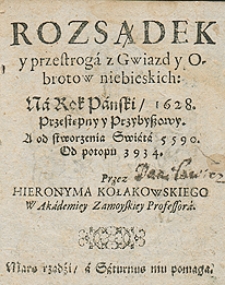 ROZSĄDEK
y przestrogá z Gwiazd y O-
brotow niebieskich:
Ná Rok Páński / 1628.
Przestępny y Przybyszowy.
A od stworzenia Swiátá 5590.
Od potopu 3934.
Przez
HIERONYMA KOŁAKOWSKIEGO
W Akádemiey Zamoyskiey Professorá.
Mars rządzi / á Sáturnus mu pomaga.